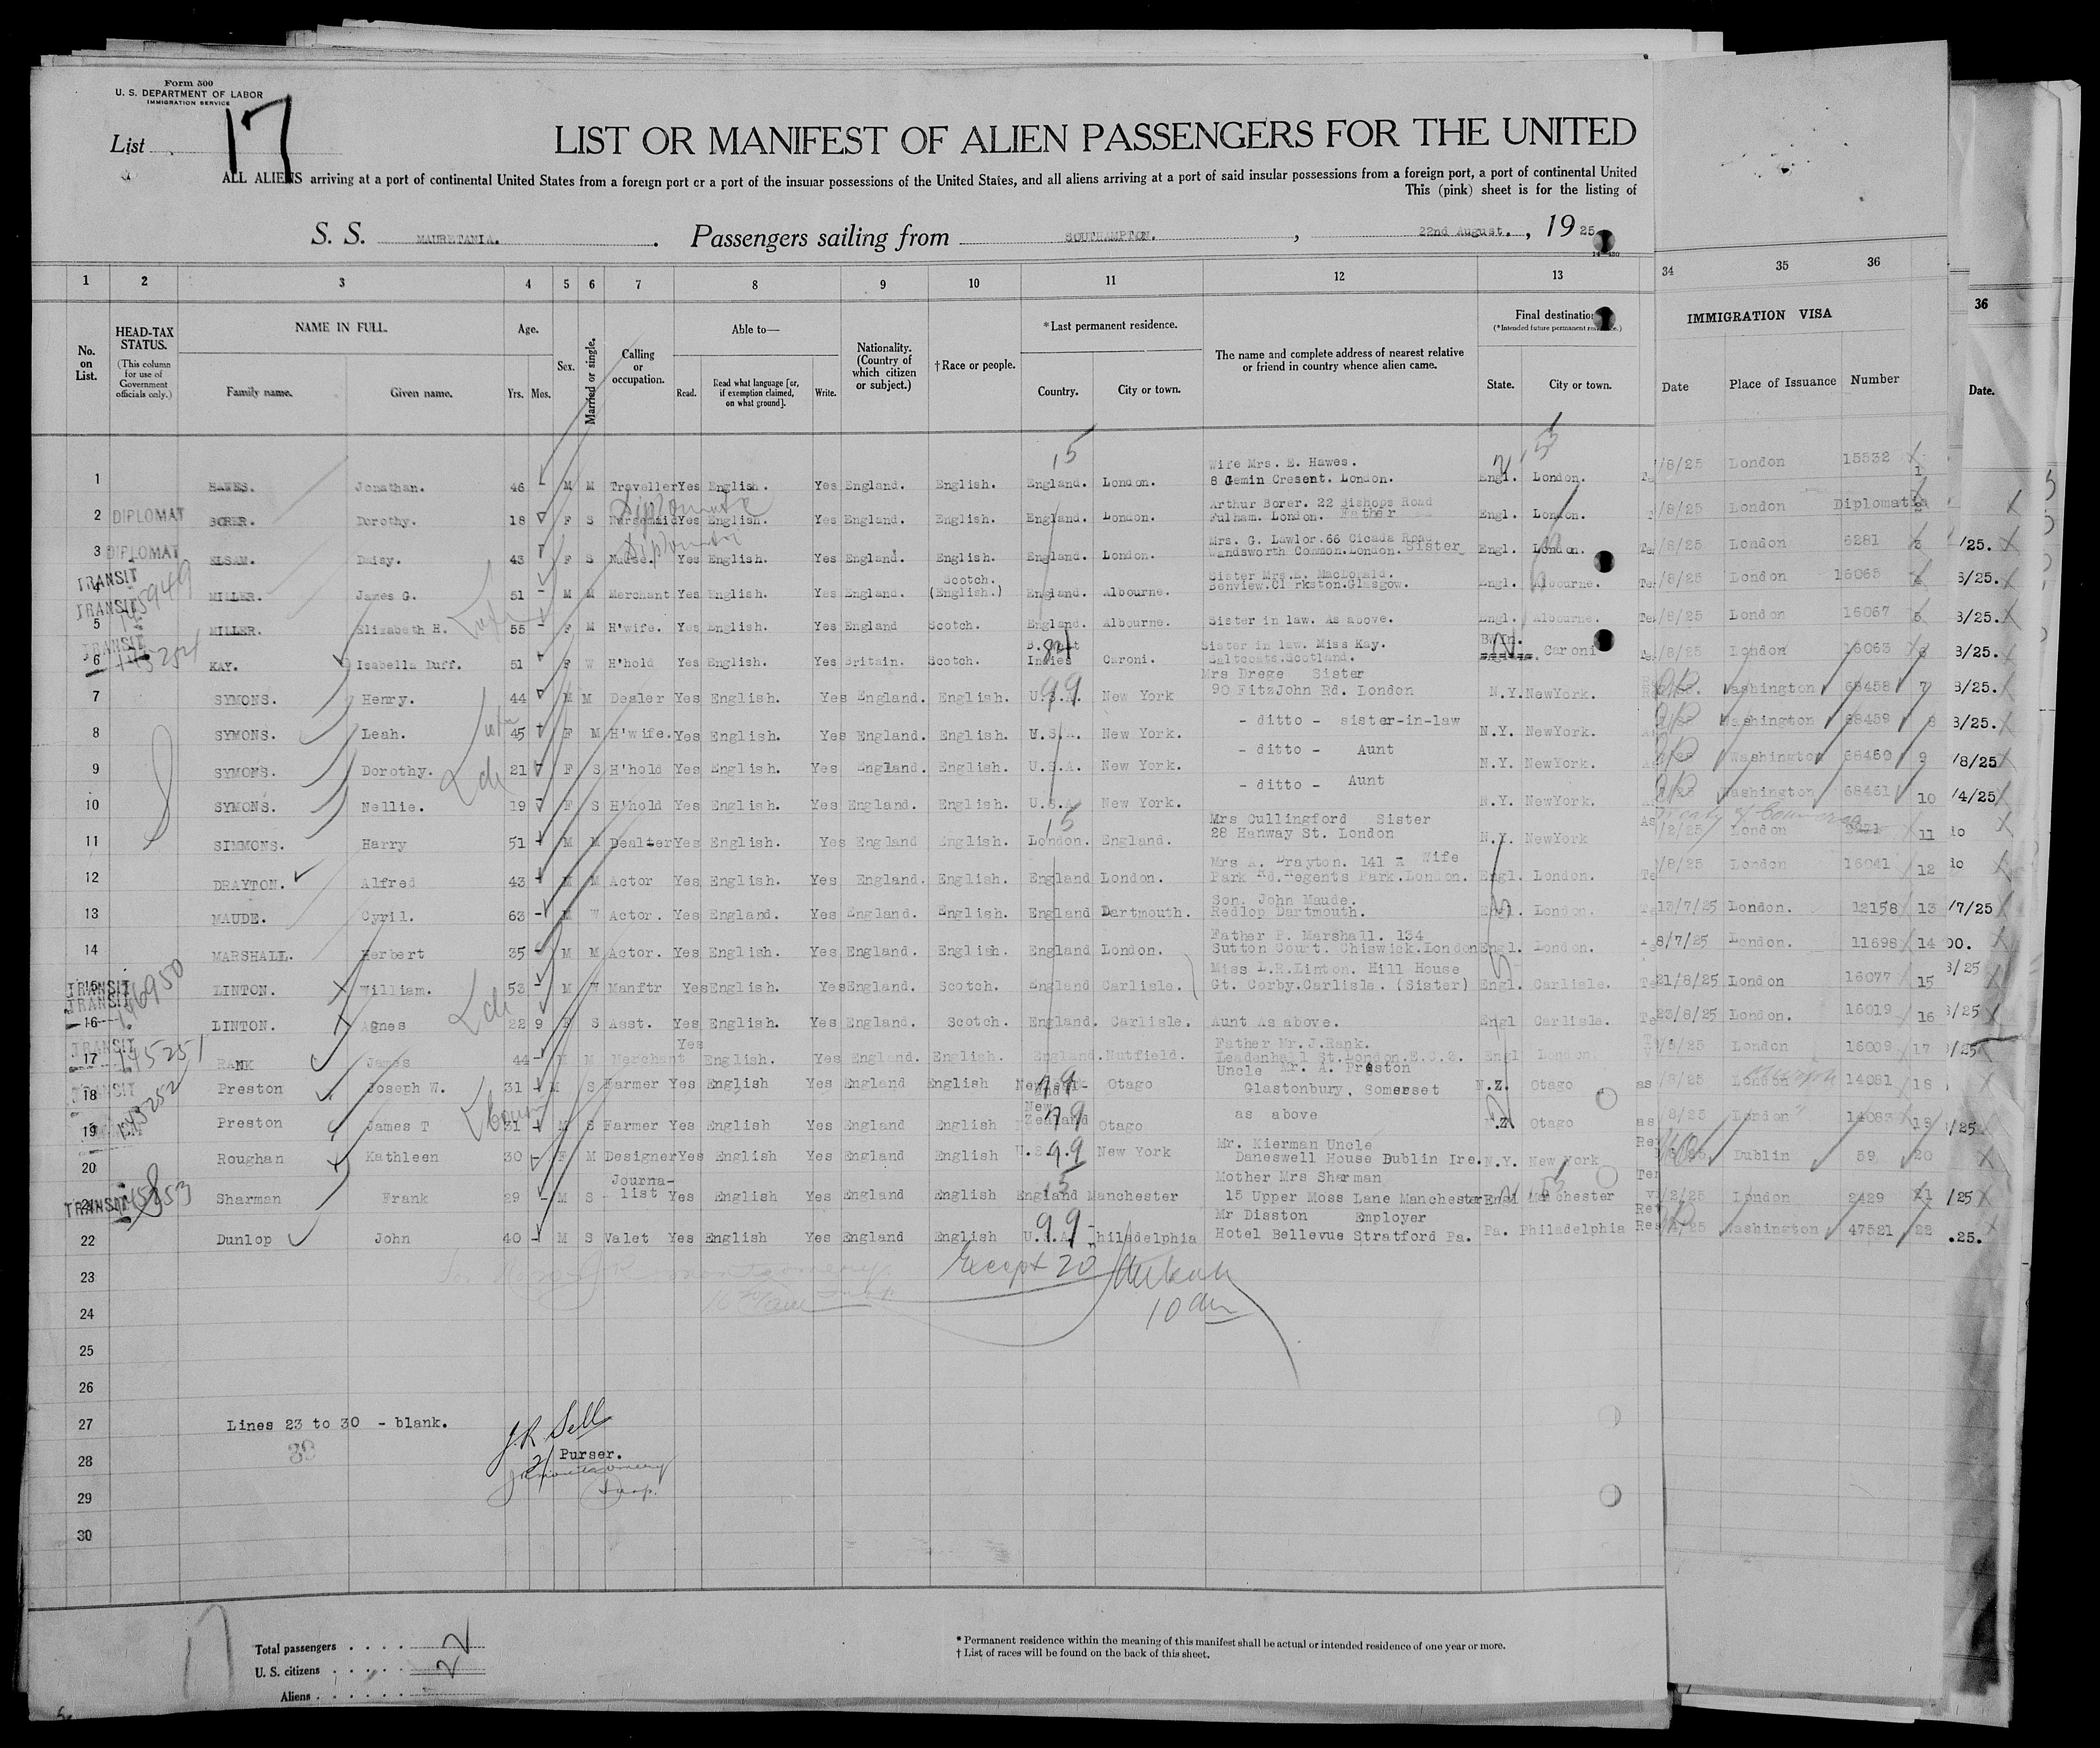 Form 500
U. S. DEPARTMENT OF LABOR
IMMIGRATION SERVICE
List 17
LIST OR MANIFEST OF ALIEN PASSENGERS FOR THE UNITED
ALL ALIENS arriving at a port of continental United States from a foreign port or a port of the insular possessions of the United States, and all aliens arriving at a port of said insular possessions from a foreign port, a port of continental United
This (pink) sheet is for the listing of
S. S. MAURETANIA. Passengers sailing from SOUTHAMPTON. , 22nd August. , 19 25
1 2 3 4 5 6 7 8 9 10 11 12 13 34 35 36
No. on List.
HEAD-TAX STATUS.
(This column for use of Government officials only.)
NAME IN FULL.
Family name. Given name.
Age.
Yrs. Mos.
Sex.
Married or single.
Calling or occupation.
Able to—
Read. Read what language [or, if exemption claimed, on what ground]. Write.
Nationality. (Country of which citizen or subject.)
†Race or people.
*Last permanent residence.
Country. City or town.
The name and complete address of nearest relative or friend in country whence alien came.
Final destination
(*Intended future permanent
State. City or town.
IMMIGRATION VISA
Date Place of Issuance Number
36
Date.
15
Wife Mrs. E. Hawes.
1 HAWES. Jonathan. 46 - M M Traveller Yes English. Yes England. English. England. London. 8 Gemin Cresent. London. Engl. London. /8/25 London 15532 1
Diplomatic
Arthur Borer. 22 Bishops Road
2 DIPLOMAT BORER. Dorothy. 18 F S Nursemaid Yes English. Yes England. English. England. London. Fulham. London. Father Engl. London. /8/25 London Diplomatic
Mrs. G. Lawlor. 66 Cicada Road
3 DIPLOMAT ELSAM. Daisy. 43 F S Nurse. Yes English. Yes England. English. England. London. Wandsworth Common. London. Sister Engl. London. /8/25 London 6281 3 /25.
Scotch. Sister Mrs. E. MacDonald.
4 TRANSIT MILLER. James G. 51 - M M Merchant Yes English. Yes England. (English.) England. Albourne. Benview. Cl rkston. Glasgow. Engl. Albourne. /8/25 London 16065 4 8/25.
5 TRANSIT 145949 MILLER. Elizabeth H. 55 - F M H'wife. Yes English. Yes England Scotch. England. Albourne. Sister in law. As above. Engl. Albourne. /8/25 London 16067 5 8/25.
Sister in law. Miss Kay.
6 TRANSIT KAY. Isabella Duff. 51 F W H'hold Yes English. Yes Britain. Scotch. Indies Caroni. Saltcoats. Scotland. Caroni /8/25 London 16063 6 8/25.
Mrs Drege Sister
7 SYMONS. Henry. 44 M M Dealer Yes English. Yes England. English. U.S.A. New York 90 FitzJohn Rd. London N.Y. NewYork. Washington 68458 7 8/25.
99
- ditto - sister-in-law
8 SYMONS. Leah. 45 F M H'wife. Yes English. Yes England. English. U.S.A. New York. N.Y. NewYork. Washington 68459 8 8/25.
- ditto - Aunt
9 SYMONS. Dorothy. 21 F S H'hold Yes English. Yes England. English. U.S.A. New York. N.Y. NewYork. Washington 68460 9 /8/25
- ditto - Aunt
10 SYMONS. Nellie. 19 F S H'hold Yes English. Yes England. English. U.S.A. New York. N.Y. NewYork. Washington 68461 10 /4/25
Treaty of Commerce
15 Mrs Cullingford Sister
11 SIMMONS. Harry 51 M M Dealter Yes English. Yes England English. London. England. 28 Hanway St. London N.Y. NewYork /2/25 London 11 do
Mrs A. Drayton. 141 Wife
12 DRAYTON. Alfred 43 M M Actor Yes English. Yes England. English. England London. Park Rd. Regents Park. London. Engl. London. /8/25 London 16041 12 do
Son. John Maude.
13 MAUDE. Cyril. 63 - M W Actor. Yes England. Yes England. English. England Dartmouth. Redlop Dartmouth. Engl. London. 13/7/25 London. 12158 13 /7/25
Father P. Marshall. 134
14 MARSHALL. Herbert 35 - M M Actor. Yes English. Yes England. English. England London. Sutton Court. Chiswick. London Engl. London. 8/7/25 London. 11698 14 00.
Miss L.R. Linton. Hill House 8/25
15 TRANSIT LINTON. William. 53 M W Manftr Yes English. Yes England. Scotch. England Carlisle. Gt. Corby. Carlisle. (Sister) Engl. Carlisle. 21/8/25 London 16077 15
16 TRANSIT LINTON. Agnes 22 9 F S Asst. Yes English. Yes England. Scotch. England. Carlisle. Aunt As above. Engl Carlisle. 23/8/25 London. 16019 16 /25
Father Mr. J. Rank.
17 TRANSIT 145251 RANK James 44 - M M Merchant Yes English. Yes England. English. England. Nutfield. Leadenhall St. London. E.C.3. Engl London. /8/25 London 16009 17 /25
Uncle Mr. A. Preston
18 TRANSIT Preston Joseph W. 31 M S Farmer Yes English Yes England English Otago Glastonbury, Somerset N.Z. Otago as /8/25 London 14081 18
New
79
19 Preston James T 31 M S Farmer Yes English Yes England English Zealand Otago as above N.Z. Otago as 8/25 London 14083 19 /25
Mr. Kierman Uncle
20 Roughan Kathleen 30 F M Designer Yes English Yes England English U.S. New York Daneswell House Dublin Ire. N.Y. New York Dublin 59 20
99
Journa- Mother Mrs Sharman
21 TRANSIT Sharman Frank 29 - M S list Yes English Yes England English England Manchester 15 Upper Moss Lane Manchester Engl Manchester /2/25 London 2429 21 /25
Mr Disston Employer
22 Dunlop John 40 M S Valet Yes English Yes England English U.S.A. Philadelphia Hotel Bellevue Stratford Pa. Pa. Philadelphia Res /25 Washington 47521 22 .25.
99
23 Except 20
24 10 am
25
26
27 Lines 23 to 30 - blank.
30
J.R. Sell
28 Purser.
29
30
17
Total passengers . . . . 22
U. S. citizens . . . . .
Aliens . . . . . .
* Permanent residence within the meaning of this manifest shall be actual or intended residence of one year or more.
† List of races will be found on the back of this sheet.